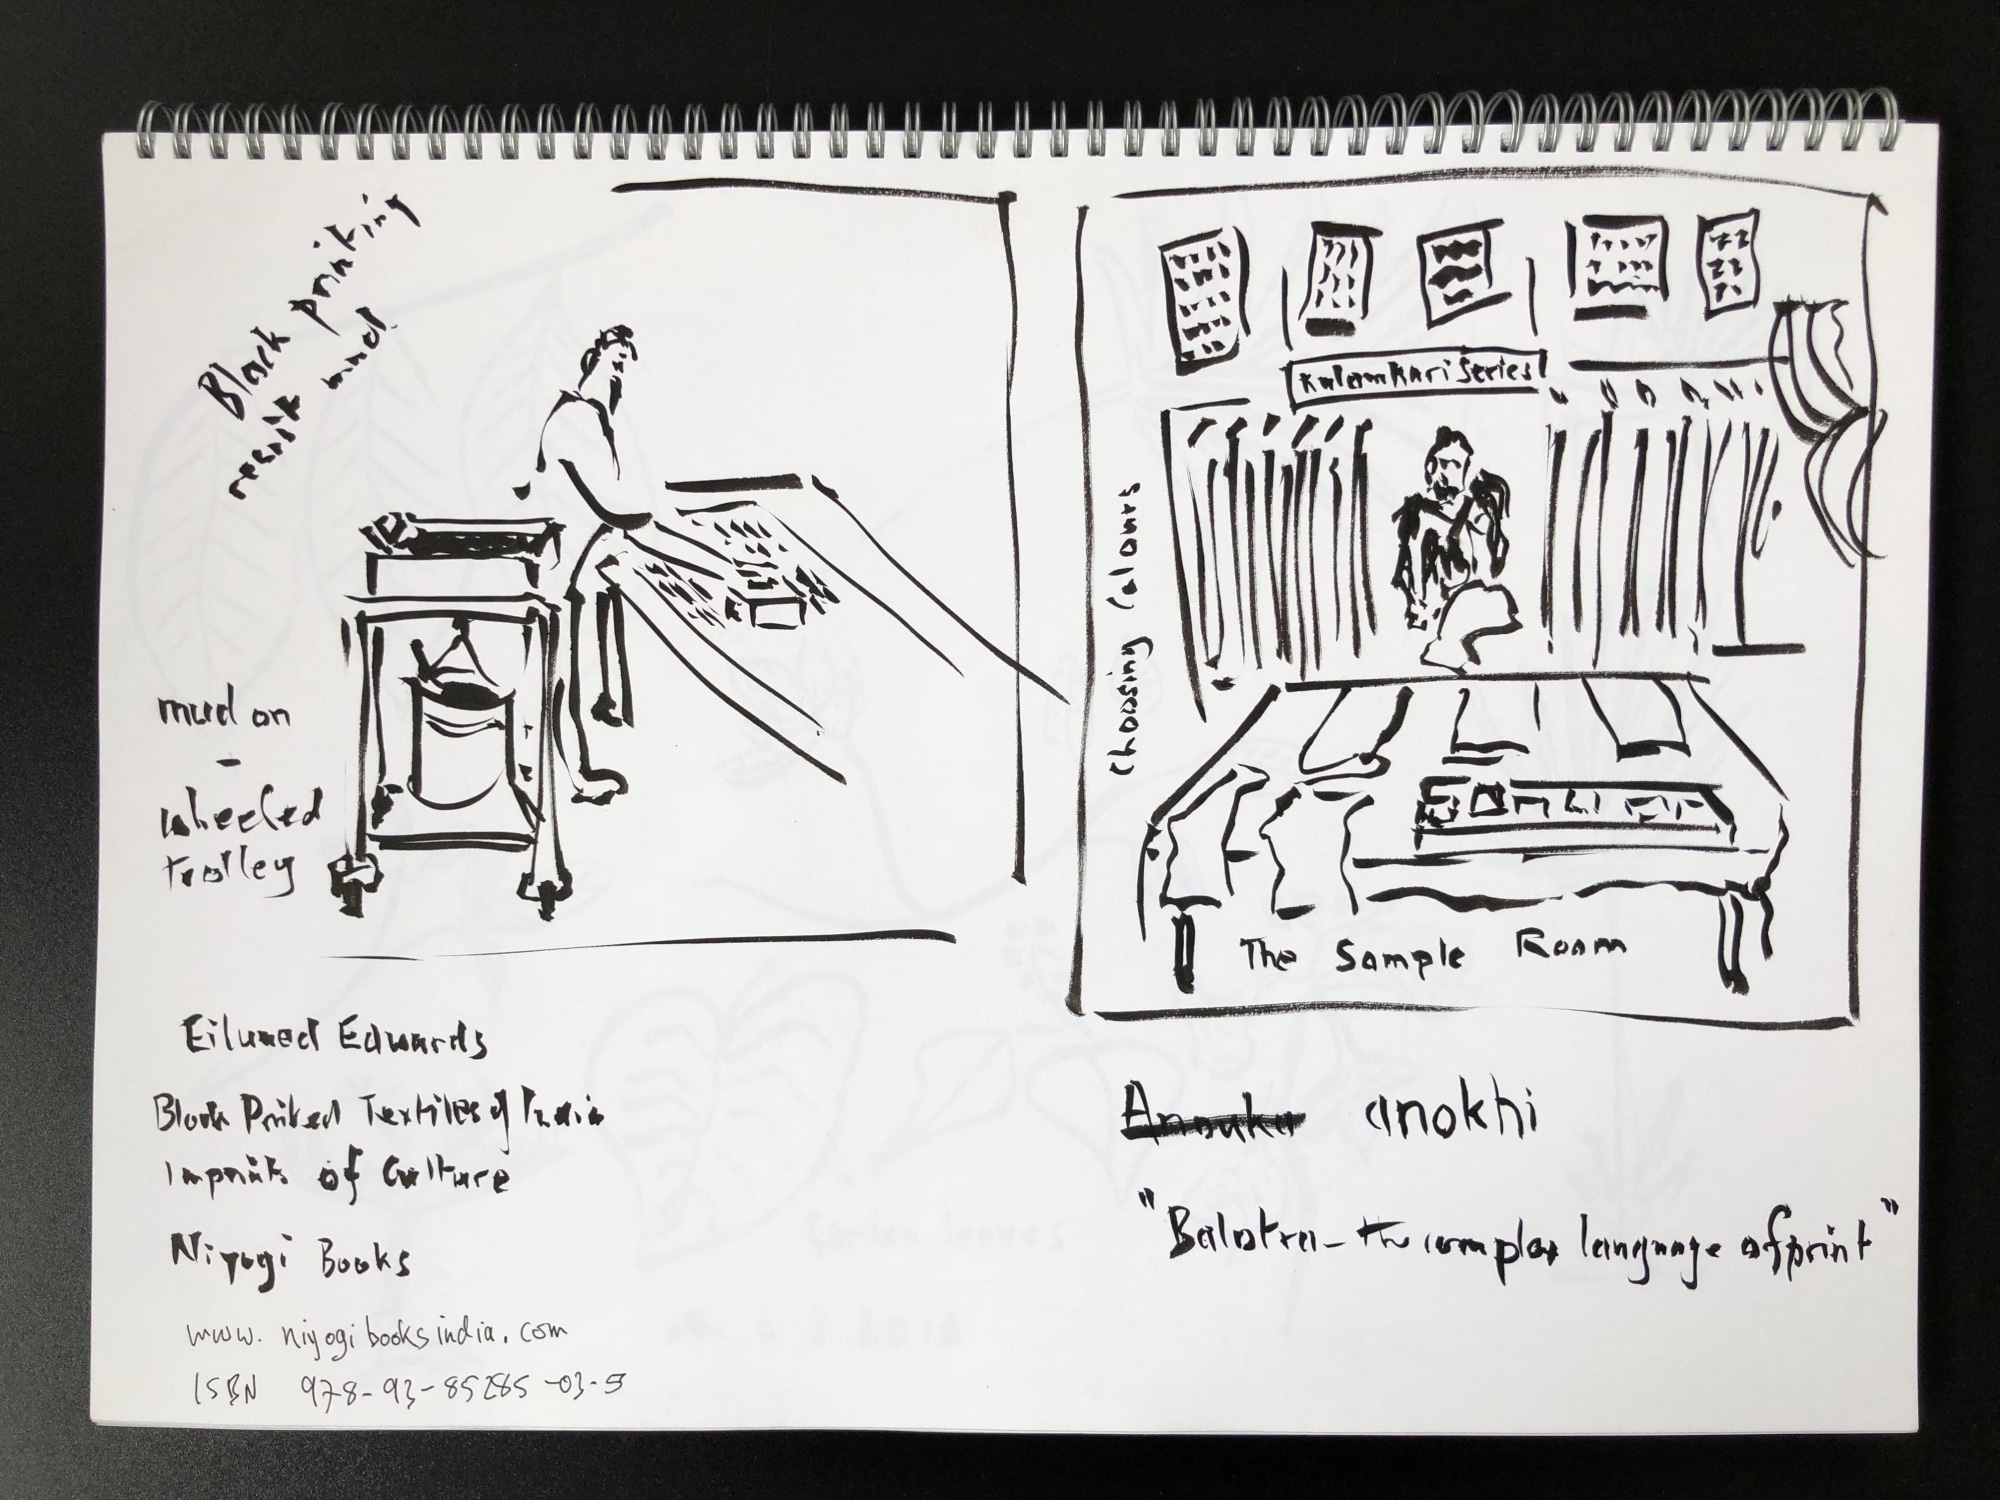 Block printing
resist mud.
mud on
-
wheeled
trolley
Eiluned Edwards
Block Printed Textiles of India
Imprints of Culture
Niyogi Books
www.niyogibooksindia.com
ISBN 978-93-85285-03-5
Kalamkari Series
choosing colours
The Sample Room
Anouka anokhi
"Balotra - the complex language of print"
garden leaves